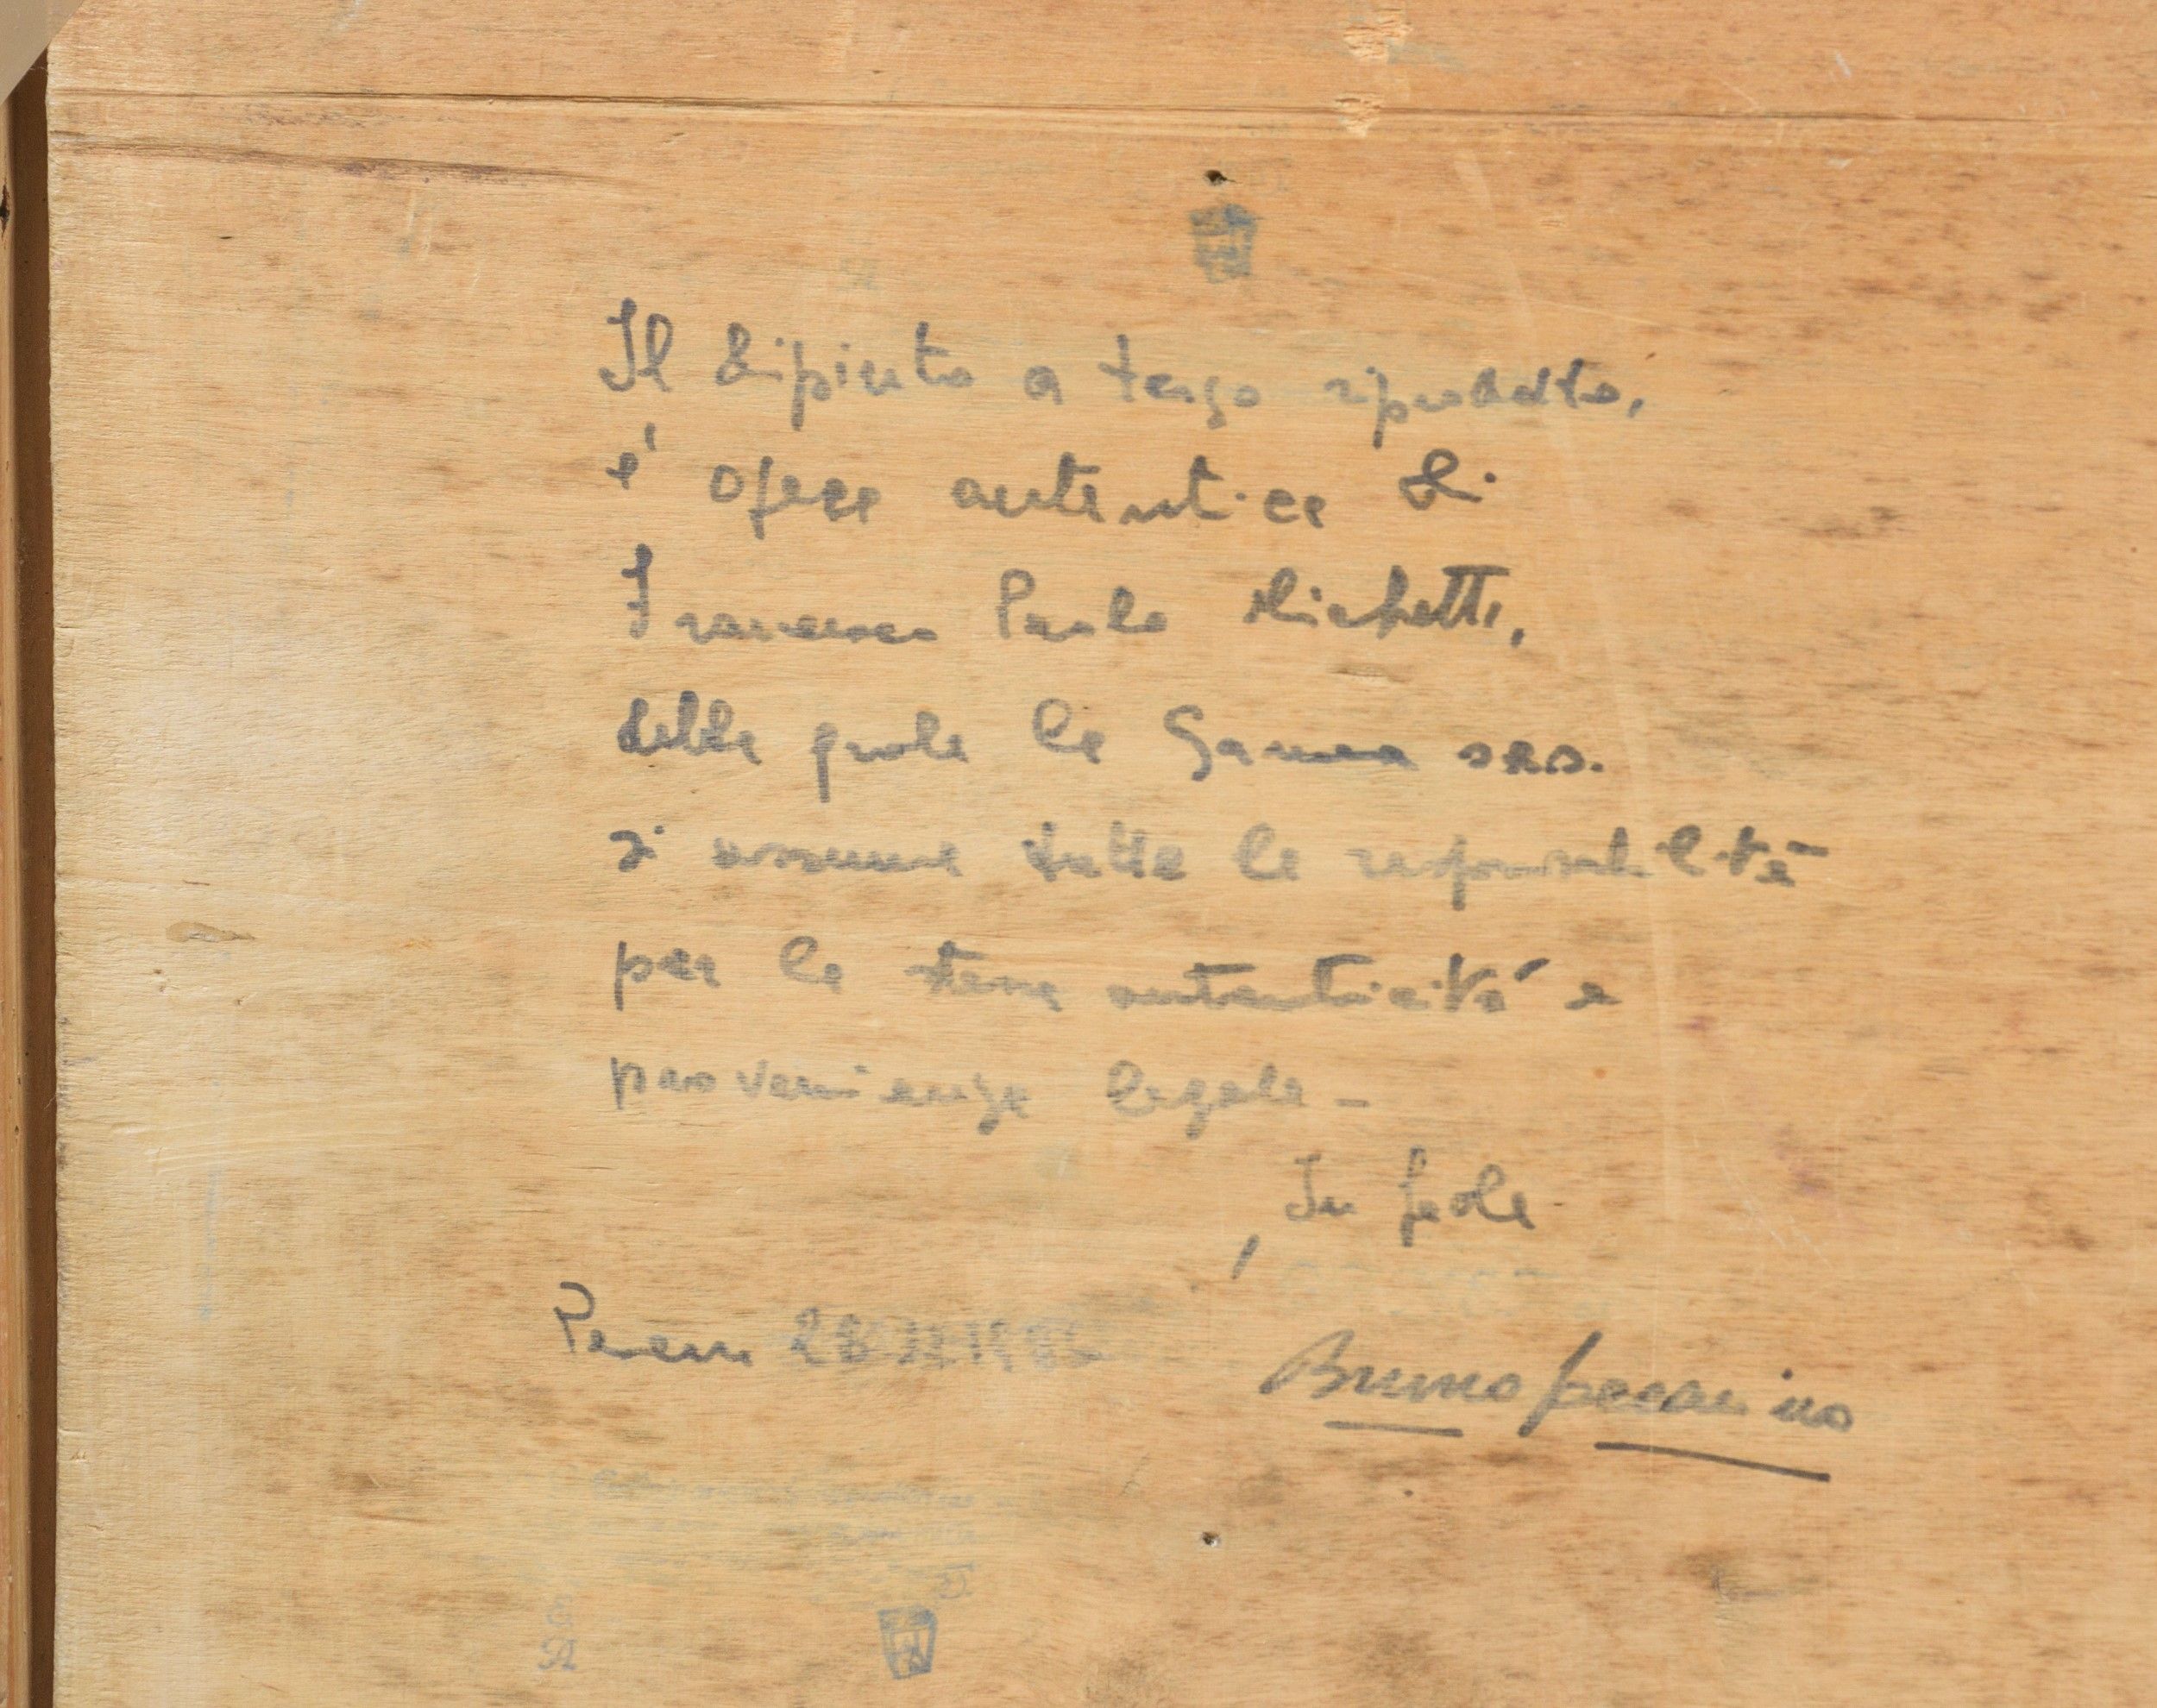 Il dipinto a tergo riprodotto,
è opera autentica di
Francesco Paolo Michetti,
della quale la Gamma sas.
si assume tutte le responsabilità
per la stessa autenticità e
provenienza legale -
In fede
28
Bruno